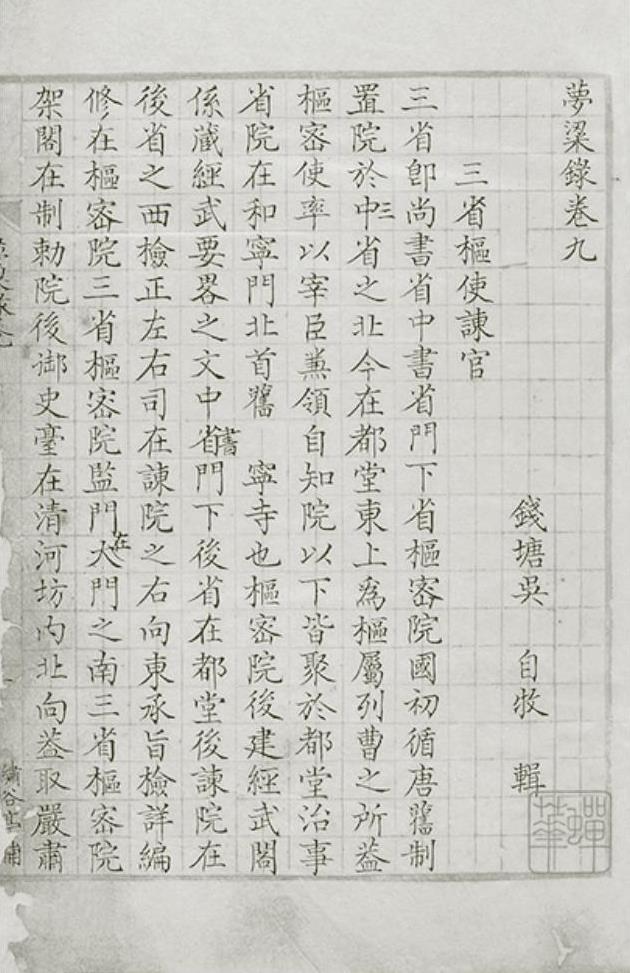 夢粱錄卷九
錢塘吳 自牧 輯
三省樞使諫官
三省卽尚書省中書省門下省樞密院國初循唐舊制
置院於中三省之北今在都堂東上爲樞屬列曹之所葢
樞密使率以宰臣兼領自知院以下皆聚於都堂治事
省院在和寧門北首舊 寧寺也樞密院後建經武閣
係藏經武要畧之文中書省門下後省在都堂後諫院在
後省之西檢正左右司在諫院之右向東承旨檢詳編
修在樞密院三省樞密院監門在大門之南三省樞密院
架閣在制勅院後御史臺在清河坊內北向葢取嚴肅